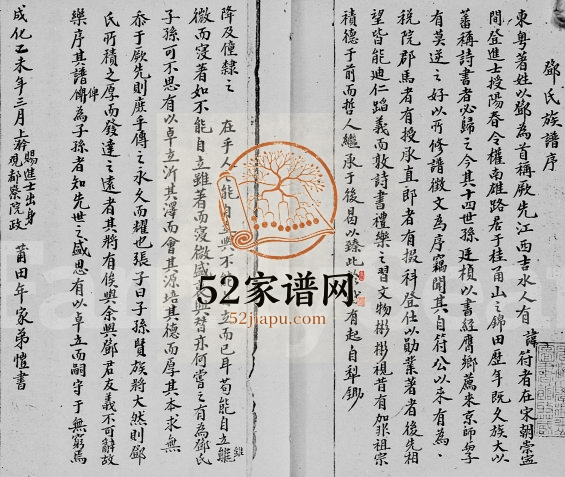 鄧氏族譜序
東粤著姓以鄧為首稱厥先江西吉水人有諱符者在宋朝崇寧
間登進士授陽春令權南雄路居于桂甬山之錦田歷年既久族大以
蕃稱詩書者必歸之今其十四世孫廷楨以書經膺鄉薦來京師與予
有莫逆之好以所修譜徵文為序竊聞其自符公以來有為
税院郡馬者有授承直郎者有掇科登仕以勛業著者後先相
望皆能迪仁蹈義而敦詩書禮樂之習文物彬彬視昔有加非祖宗
積德于前而哲人繼承于後曷以臻此 有起自犁鋤
降及僮隸之 在乎人之能自立與不能 立而已耳苟能自立雖
微而寖著如不能自立雖著而寖微盛 與替亦何嘗之有為鄧氏
子孫可不思有以卓立泝其澤而會其源培其德而厚其本求無
忝于厥先則庶乎傳之永久而耀也張子曰子孫賢族將大然則鄧
氏所積之厚而發達之遠者其將有俟與余與鄧君友義不可辭故
樂序其譜俾傳為子孫者知先世之盛思有以卓立而嗣守于無窮焉
成化乙未年三月上澣賜進士出身觀都察院政 莆田年家弟愷書
52家谱网
52jiapu.com